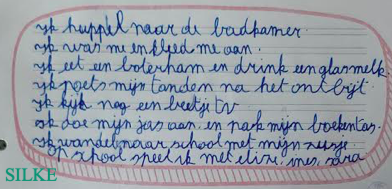 ik huppel naar de badkamer.
ik was me en kleed me aan.
ik eet een boterham en drink een glas melk
ik poets mijn tanden na het ontbijt.
ik kijk nog een beetje tv
ik doe mijn jas aan en pak mijn boekentas.
ik wandel naar school met mijn zusje.
op school speel ik met
SILKE